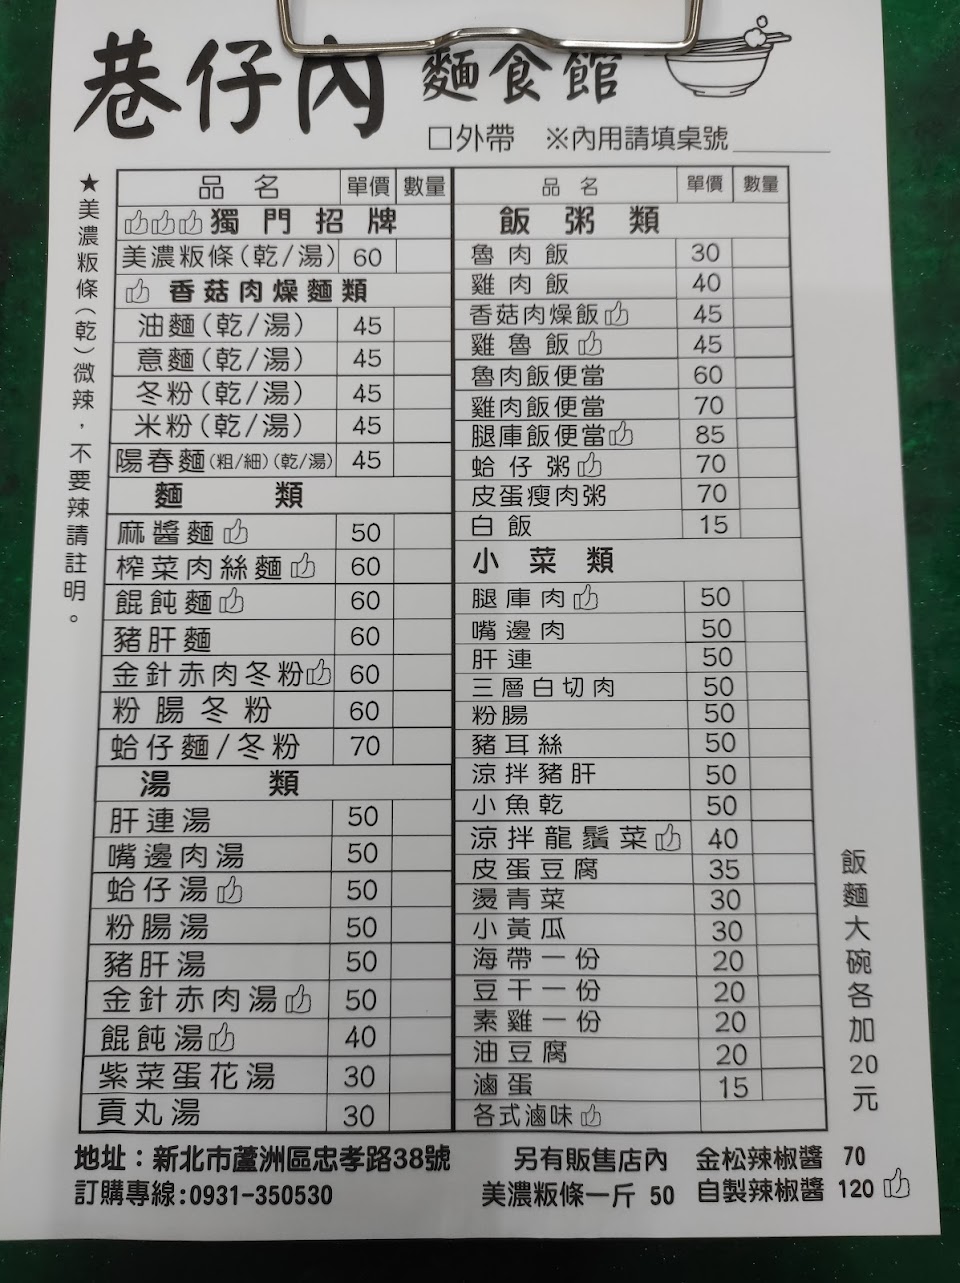 巷仔內 麵食館
□外帶 ※內用請填桌號
★美濃粄條(乾)微辣，不要辣請註明。
品名 單價 數量
獨門招牌
美濃粄條(乾/湯) 60
香菇肉燥麵類
油麵(乾/湯) 45
意麵(乾/湯) 45
冬粉(乾/湯) 45
米粉(乾/湯) 45
陽春麵(粗/細)(乾/湯) 45
麵類
麻醬麵 50
榨菜肉絲麵 60
餛飩麵 60
豬肝麵 60
金針赤肉冬粉 60
粉腸冬粉 60
蛤仔麵/冬粉 70
湯類
肝連湯 50
嘴邊肉湯 50
蛤仔湯 50
粉腸湯 50
豬肝湯 50
金針赤肉湯 50
餛飩湯 40
紫菜蛋花湯 30
貢丸湯 30
品名 單價 數量
飯粥類
魯肉飯 30
雞肉飯 40
香菇肉燥飯 45
雞魯飯 45
魯肉飯便當 60
雞肉飯便當 70
腿庫飯便當 85
蛤仔粥 70
皮蛋瘦肉粥 70
白飯 15
小菜類
腿庫肉 50
嘴邊肉 50
肝連 50
三層白切肉 50
粉腸 50
豬耳絲 50
涼拌豬肝 50
小魚乾 50
涼拌龍鬚菜 40
皮蛋豆腐 35
燙青菜 30
小黃瓜 30
海帶一份 20
豆干一份 20
素雞一份 20
油豆腐 20
滷蛋 15
各式滷味
飯麵大碗各加20元
地址：新北市蘆洲區忠孝路38號
訂購專線:0931-350530
另有販售店內
美濃粄條一斤 50
金松辣椒醬 70
自製辣椒醬 120